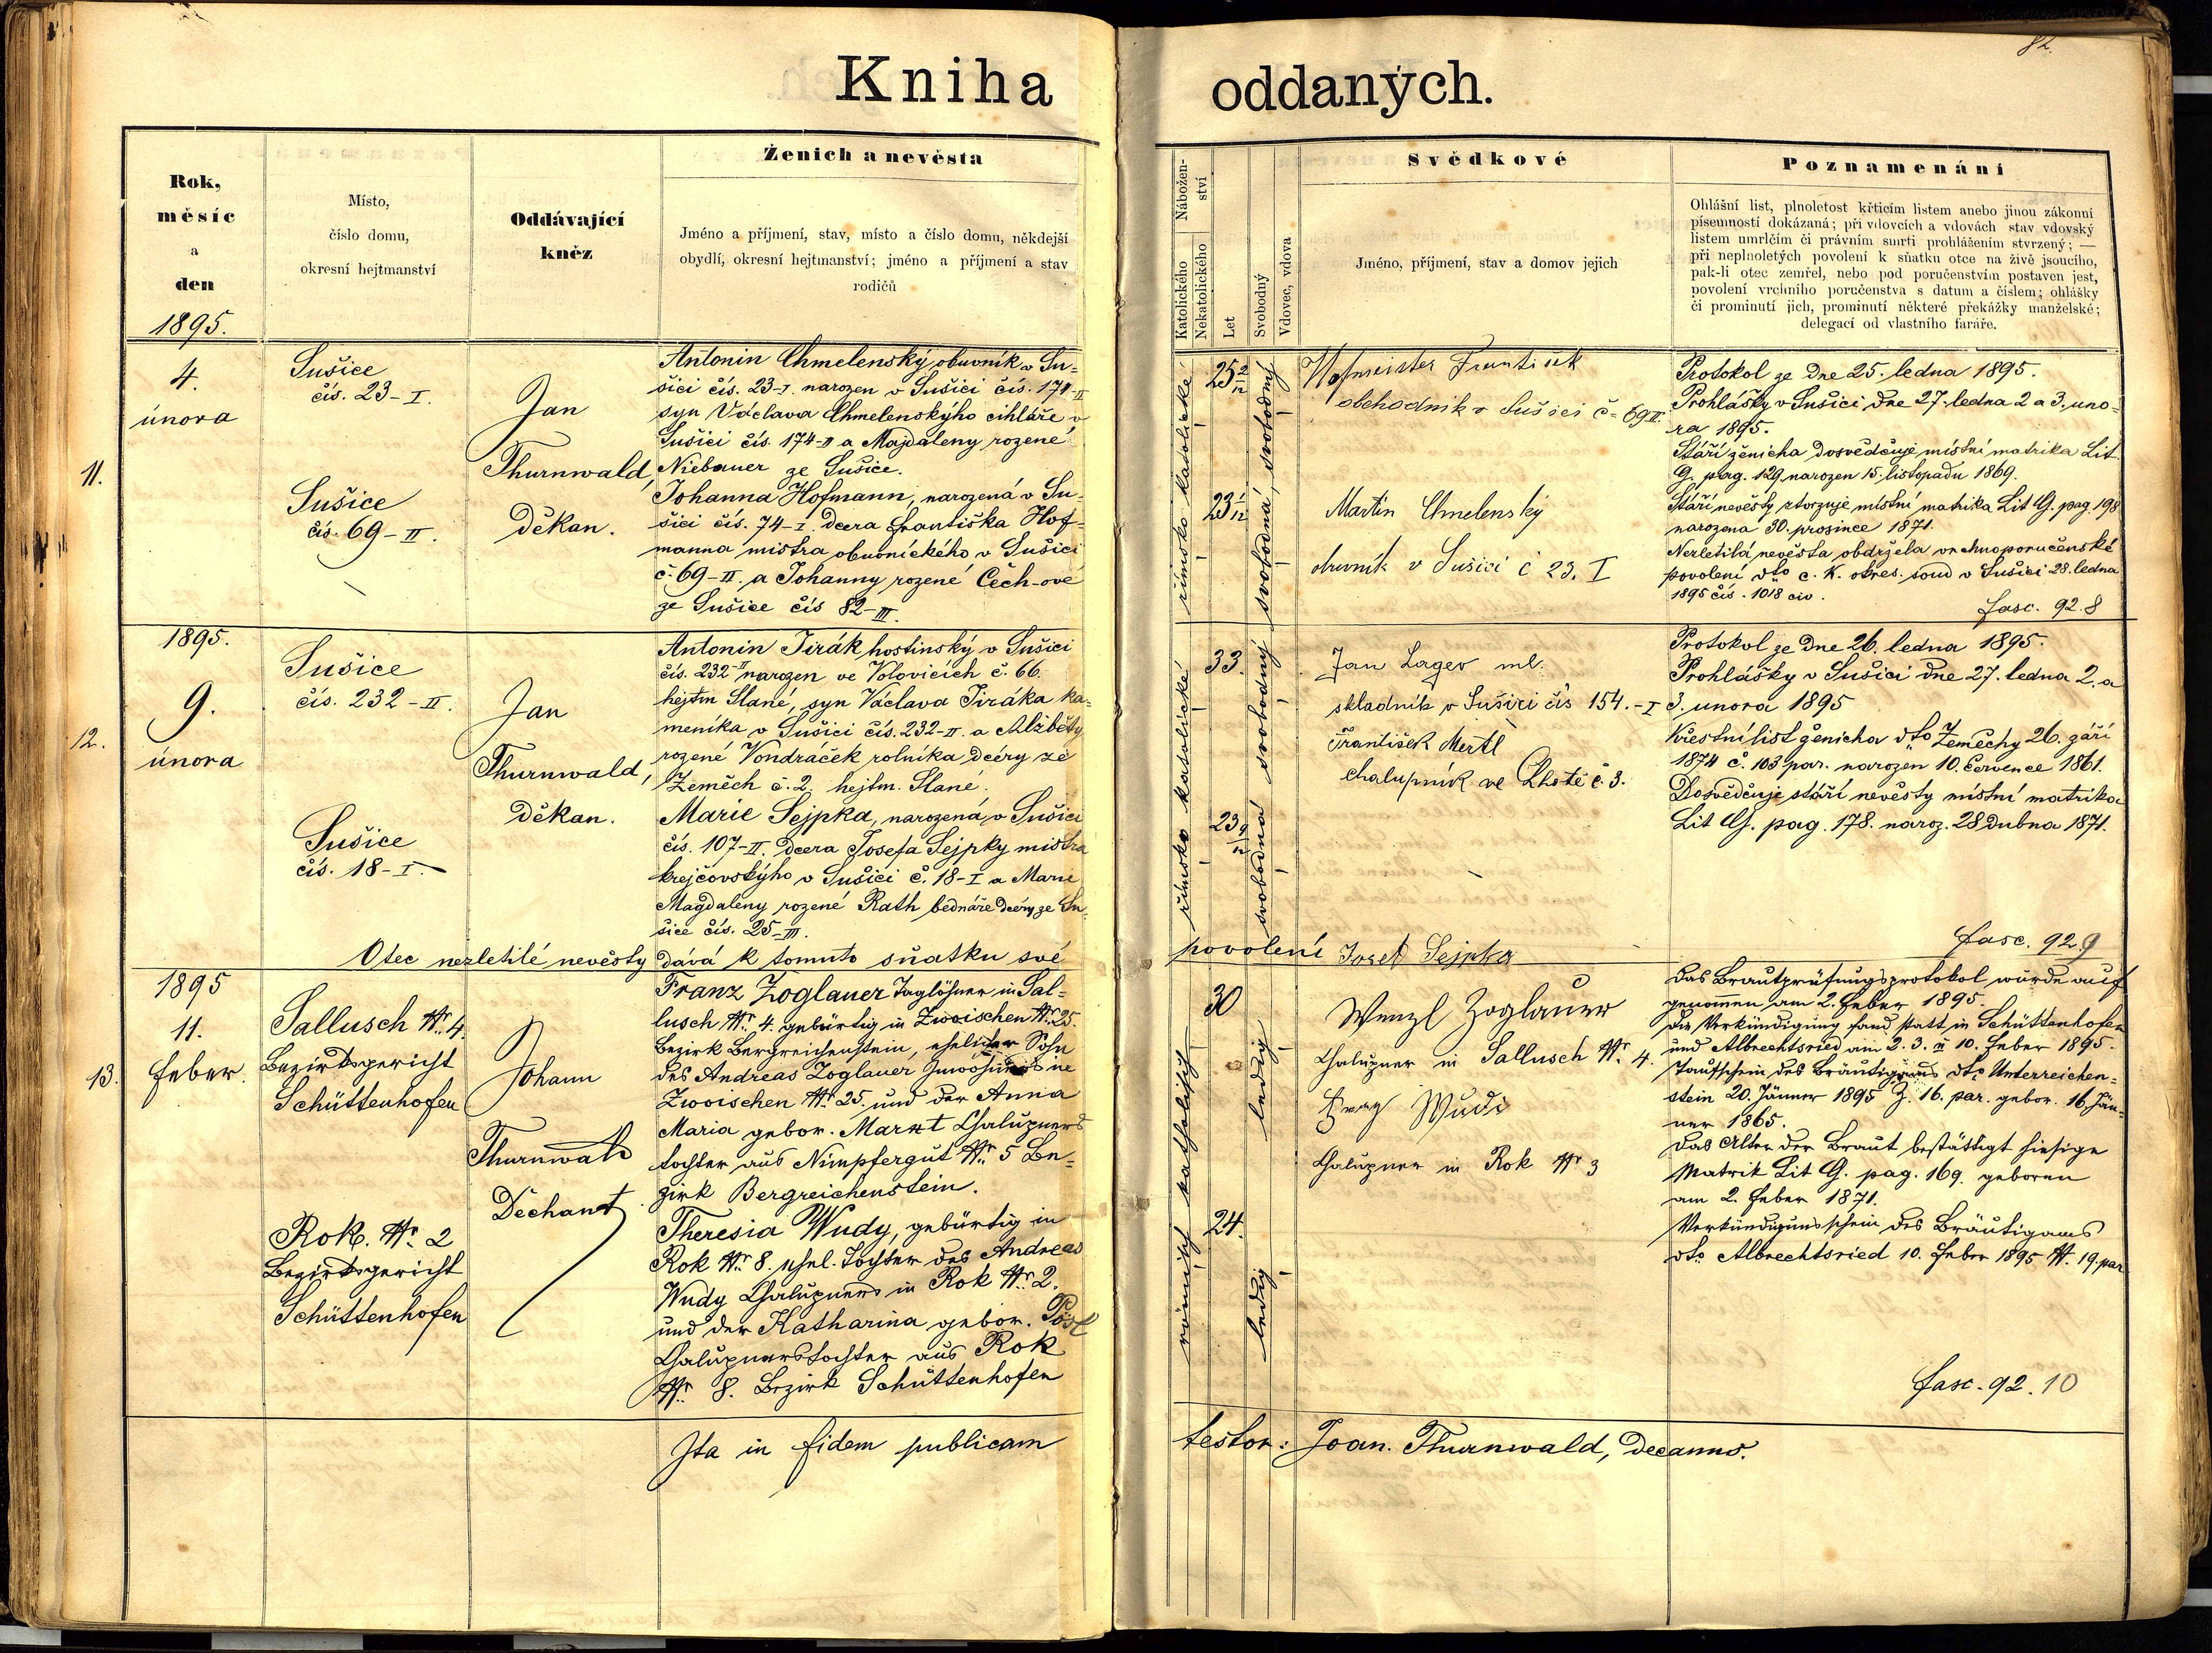 Kniha
oddaných.
82.
Rok,
měsíc
a
den
1895.
Místo,
číslo domu,
okresní hejtmanství
Oddávající
kněz
Ženich a nevěsta
Jméno a příjmení, stav, místo a číslo domu, někdejší
obydlí, okresní hejtmanství; jméno a příjmení a stav
rodičů
Nábožen-
ství
Katolického
Nekatolického
Let
Svobodný
Vdovec, vdova
Svědkové
Jméno, příjmení, stav a domov jejich
Poznamenání
Ohlášní list, plnoletost křticím listem anebo jinou zákonní
písemností dokázaná; při vdovcích a vdovách stav vdovský
listem umrlčím či právním smrti prohlášením stvrzený; —
při neplnoletých povolení k sňatku otce na živě jsoucího,
pak-li otec zemřel, nebo pod poručenstvím postaven jest,
povolení vrchního poručenstva s datum a číslem; ohlášky
či prominutí jich, prominutí některé překážky manželské;
delegací od vlastního faráře.
11.
4.
února
Sušice
čís. 23-I.
Sušice
čís. 69-II.
Jan
Thurnwald,
děkan.
Antonin Chmelenský obuvník v Su-
šici čís. 23-I. narozen v Sušici čís. 174-II
syn Václava Chmelenskýho cihláře v
Sušici čís. 174-II a Majdaleny rozené
Niebauer ze Sušice.
Johanna Hofmann, narozená v Su-
šici čís. 74-I. dcera Františka Hof-
manna mistra obuvnického v Sušici
č. 69-II. a Johanny rozené Čech-ové
ze Sušice čís 82-III.
římsko katolické
25 2/12
svobodný
23 1/12
svobodná,
Hofmeister Frantisek
obchodnik v Sušici č- 69 II.
Martin Chmelenský
obuvník v Sušici č 23. I
Protokol ze dne 25. ledna 1895.
Prohlášky v Sušici dne 27. ledna 2 a 3. úno-
ra 1895.
Stáří ženicha dosvědčuje místní matrika Lit.
G. pag. 129 narozen 15. listopadu 1869.
Stáří nevěsty stvrzuje místní matrika Lit G. pag. 198
narozena 30. prosince 1871.
Nezletilá nevěsta obdržela vrchnoporučenské
povolení dto c. k. okres. soud v Sušici 28. ledna
1895 čís. 1018 civ.
fasc. 92.8
12.
1895.
9.
února
Sušice
čís. 232-II.
Sušice
čís. 18-I.
Jan
Thurnwald,
děkan.
Antonin Jirák hostinský v Sušici
čís. 232-II narozen ve Volovicích č. 66.
hejtm Slané, syn Václava Jiráka ka-
meníka v Sušici čís. 232-II. a Alžběty
rozené Vondráček rolníka dcéry ze
Zeměch č. 2. hejtm. Slané.
Marie Sejpka, narozená v Sušici
čís. 107-II. dcera Josefa Sejpky mistra
krejčovskýho v Sušici č. 18-I a Marie
Magdaleny rozené Rath bednáře dcéry ze Su-
šice čís. 25-III.
Otec nezletilé nevěsty dává k tomuto sňatku své povolení Josef Sejpka
římsko katolické
33.
svobodný
23 9/12
svobodná
Jan Lager ml.
skladník v Sušici čís 154.-I
František Mertl
chalupník ve Lhotě č. 3.
Protokol ze dne 26. ledna 1895.
Prohlášky v Sušici dne 27. ledna 2. a
3. února 1895
Křestní list ženicha dto Zeměchy 26. září
1874 č. 103 par. narozen 10. července 1861.
Dosvědčuje stáří nevěsty místní matrika
Lit G. pag. 178. naroz. 28 dubna 1871.
fasc. 92.9
13.
1895
11.
Feber.
Sallusch Nr. 4.
Bezirksgericht
Schüttenhofen
Rok. Nr. 2
Bezirksgericht
Schüttenhofen
Johann
Thurnwald
Dechant
Franz Zoglauer Taglöhner in Sal-
lusch Nr. 4. gebürtig in Zwoischen Nr. 25.
Bezirk Bergreichenstein, ehelicher Sohn
des Andreas Zoglauer Inwohners in
Zwoischen Nr. 25. und der Anna
Maria gebor. Markt Chalupners
tochter aus Nimpfergut Nr. 5 Be-
zirk Bergreichenstein.
Theresia Wudy, gebürtig in
Rok Nr. 8. ehel. Tochter des Andreas
Wudy Chalupners in Rok Nr. 2.
und der Katharina gebor. Pösl
Chalupnerstochter aus Rok
Nr. 8. Bezirk Schüttenhofen
römisch katholisch
30
ledig
24.
ledig
Wenzl Zoglauer
Chalupner in Sallusch Nr. 4.
Franz Wudi
Chalupner in Rok Nr 3
Das Brautprüfungsprotokol wurde auf
genommen am 2. Feber 1895.
Die Verkündigung fand statt in Schüttenhofen
und Albrechtsried am 2. 3. u 10. Feber 1895.
Taufschein des Bräutigams dto Unterreichen-
stein 20. Jänner 1895 Z. 16. par. gebor. 16. Jän-
ner 1865.
Das Alter der Braut bestättigt hiesige
Matrik Lit G. pag. 169. geboren
am 2. Feber 1871.
Verkündigungsschein des Bräutigams
dto Albrechtsried 10. Feber 1895 N. 19. par
fasc. 92.10
Ita in fidem publicam testor: Joan. Thurnwald, decanus.